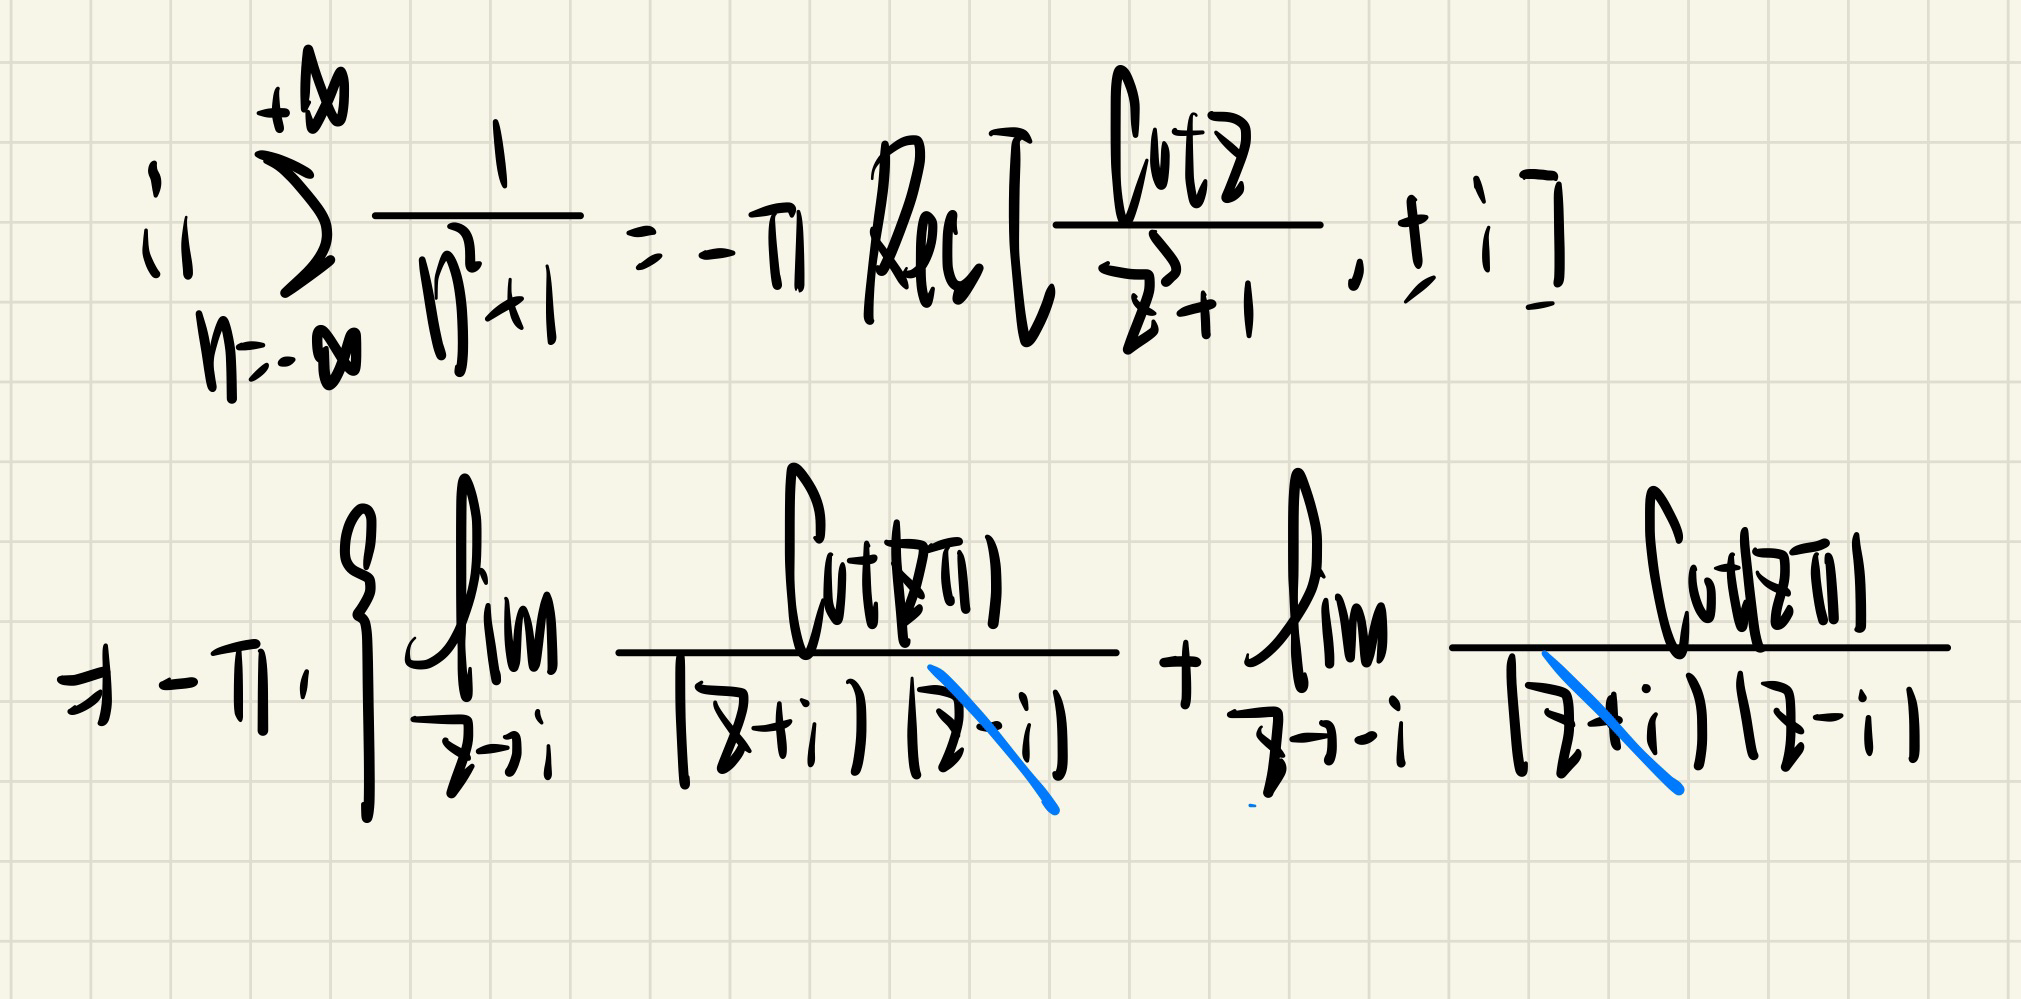 ii \sum_{n=-\infty}^{+\infty} \frac{1}{n^2+1} = -\pi Res [ \frac{Cot z}{z^2+1}, \pm i ]
\Rightarrow -\pi \cdot \{ \lim_{z \to i} \frac{Cot(z\pi)}{(z+i)(z-i)} + \lim_{z \to -i} \frac{Cot(z\pi)}{(z+i)(z-i)}